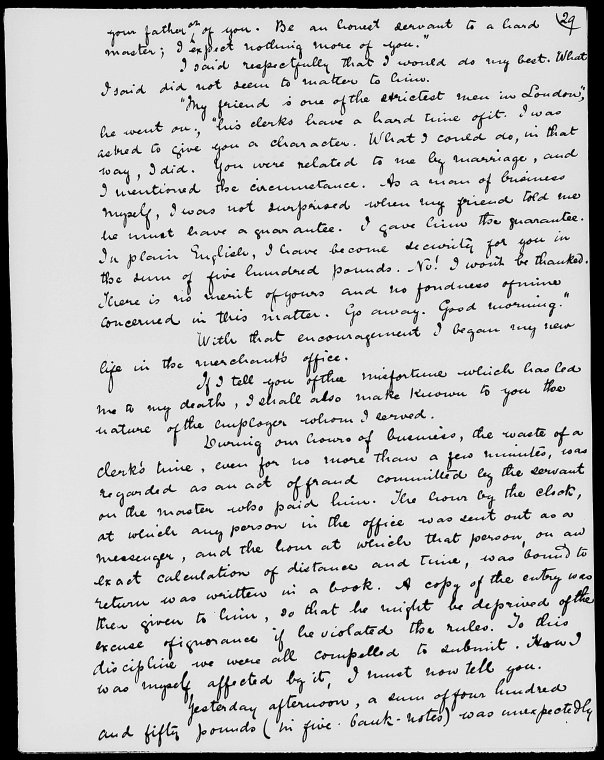 29
your father, or of you. Be an honest servant to a hard
master; I expect nothing more of you."
I said respectfully that I would do my best. What
I said did not seem to matter to him.
"My friend is one of the strictest men in London",
he went on, "his clerks have a hard time of it. I was
asked to give you a character. What I could do, in that
way, I did. You were related to me by marriage, and
I mentioned the circumstance. As a man of business
myself, I was not surprised when my friend told me
he must have a guarantee. I gave him the guarantee.
In plain English, I have become security for you in
the sum of five hundred pounds. No! I won't be thanked.
There is no merit of yours and no fondness of mine
concerned in this matter. Go away. Good morning."
With that encouragement I began my new
life in the merchant's office.
If I tell you of the misfortune which has led
me to my death, I shall also make known to you the
nature of the employer whom I served.
During our hours of business, the waste of a
clerk's time, even for no more than a few minutes, was
regarded as an act of fraud committed by the servant
on the master who paid him. The hour by the clock,
at which any person in the office was sent out as a
messenger, and the hour at which that person, on an
exact calculation of distance and time, was bound to
return was written in a book. A copy of the entry was
then given to him, so that he might be deprived of the
excuse of ignorance if he violated the rules. To this
discipline we were all compelled to submit. How I
was myself affected by it, I must now tell you.
Yesterday afternoon, a sum of four hundred
and fifty pounds (in five bank-notes) was unexpectedly